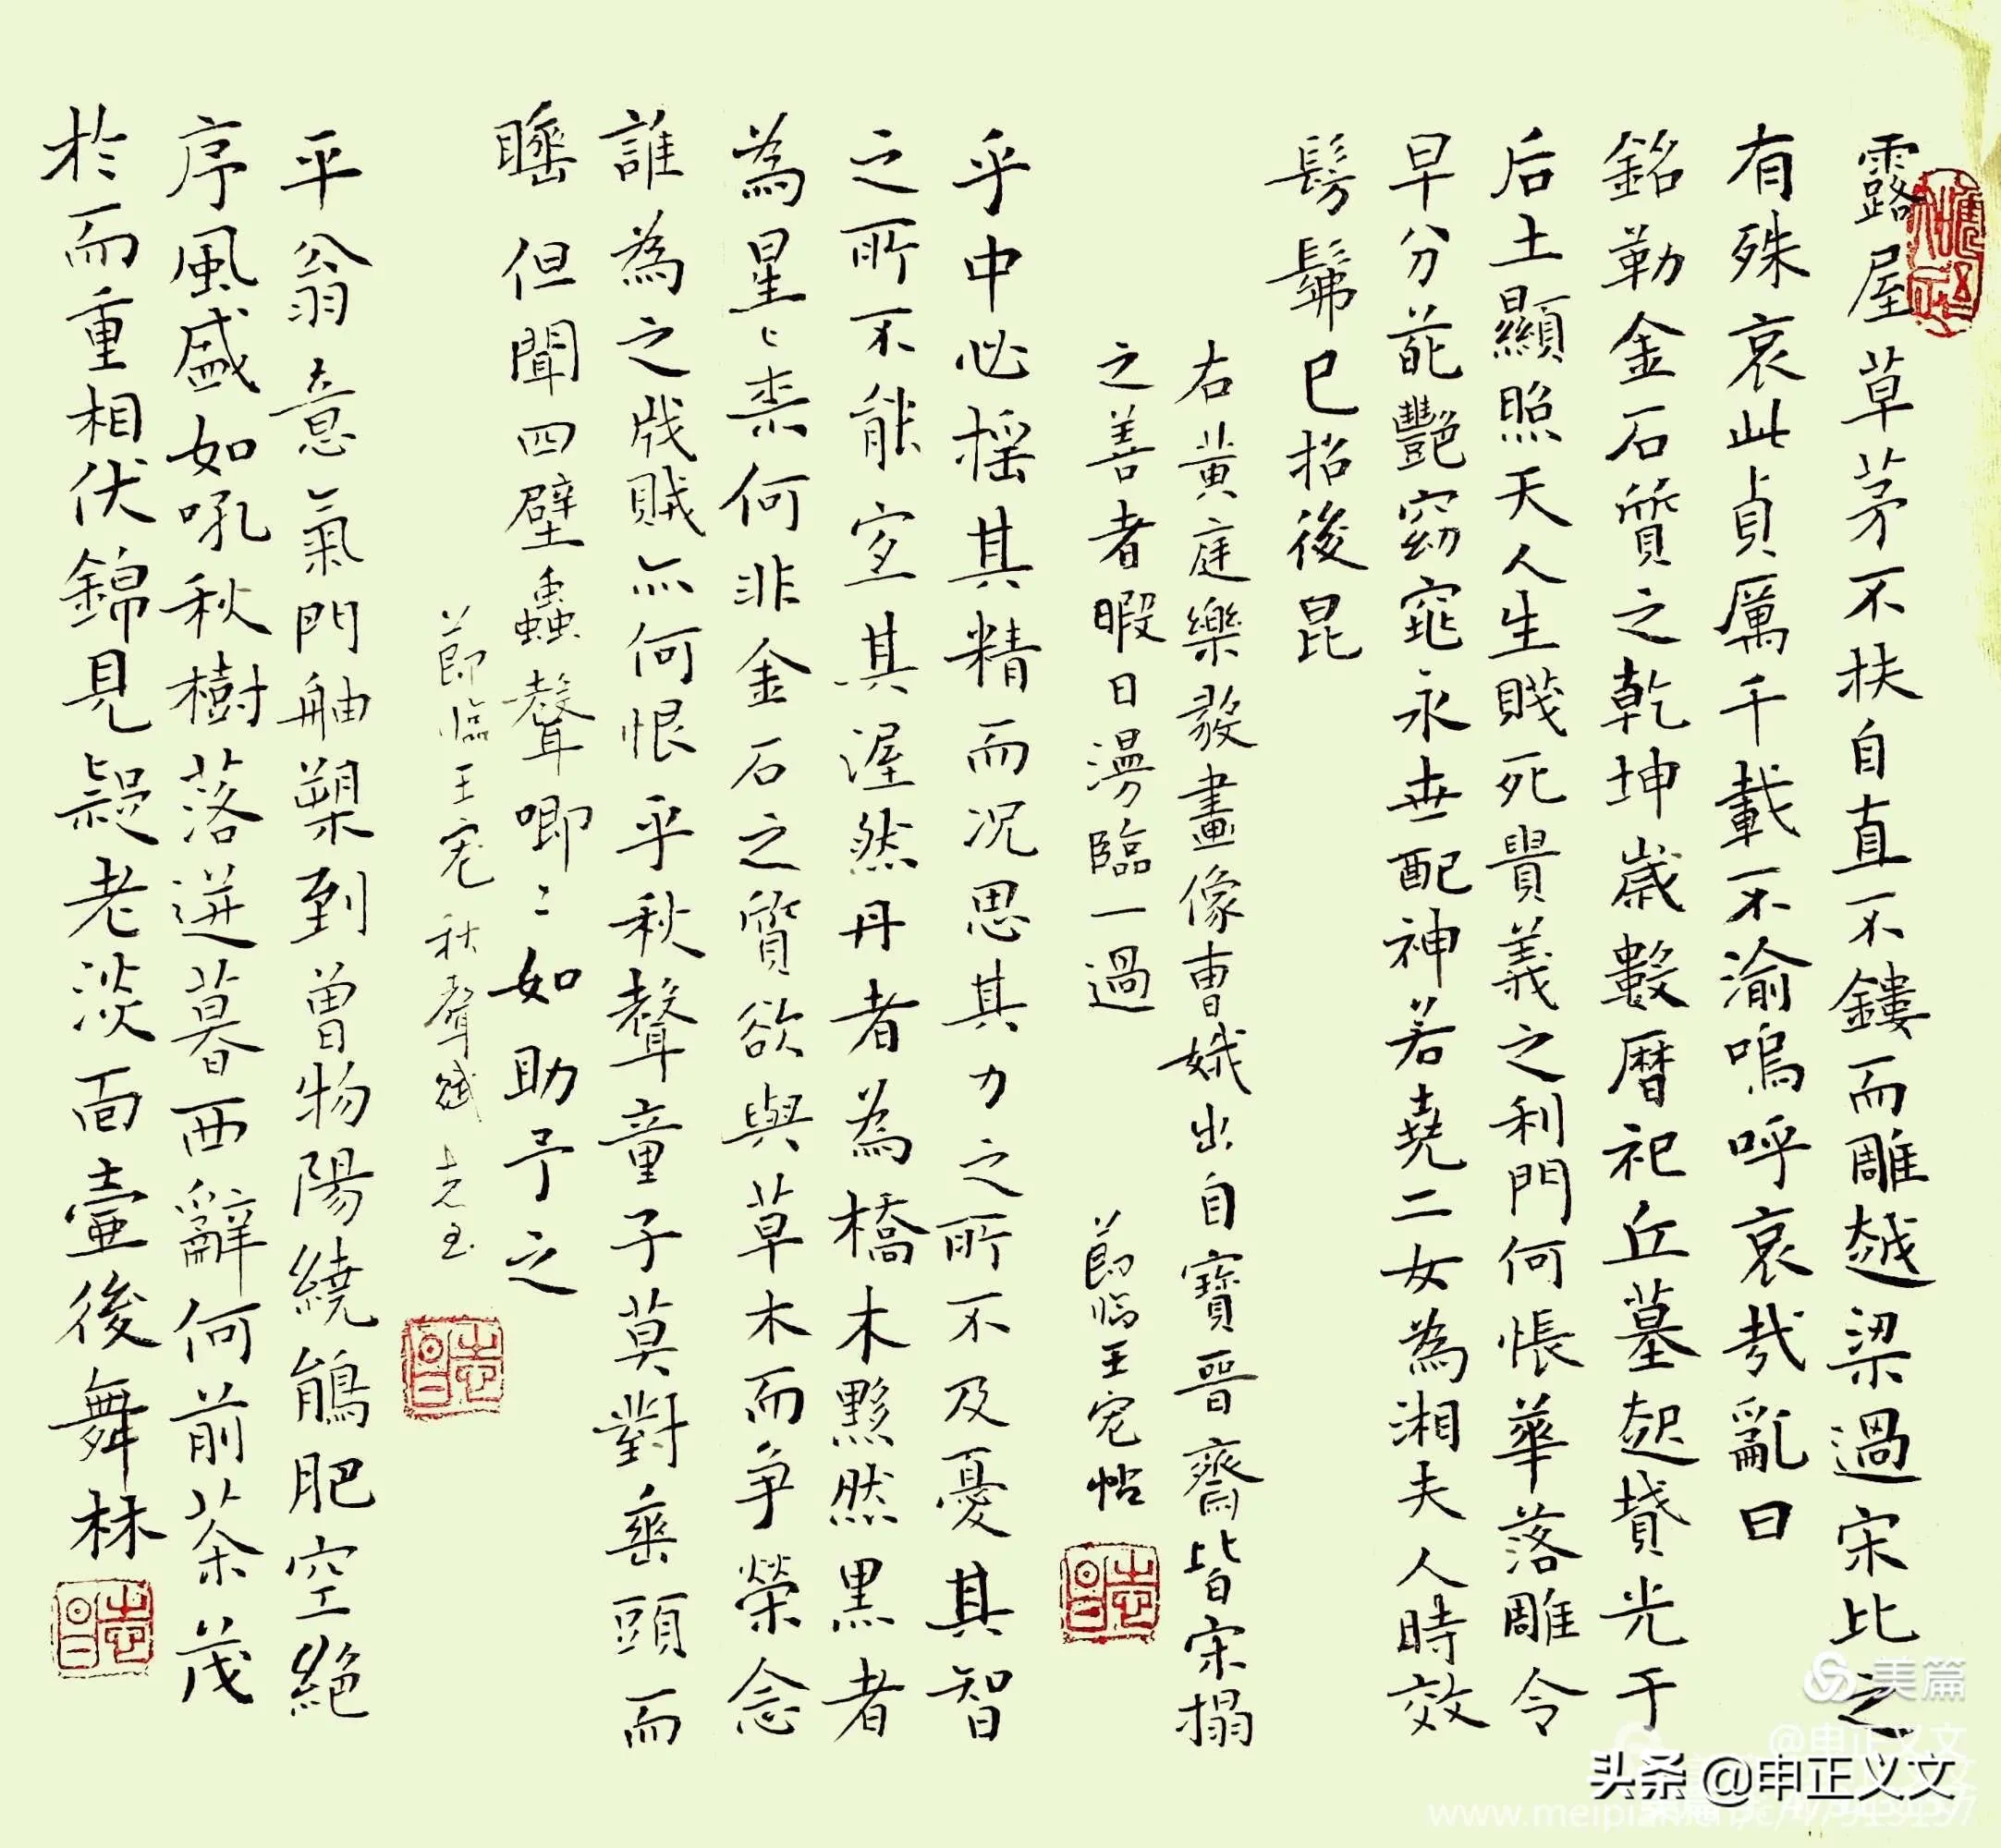 露屋草茅不扶自直不鏤而雕越梁過宋比之
有殊哀此貞厲千載不渝嗚呼哀哉亂曰
銘勒金石質之乾坤歲數曆祀丘墓起墳光于
后土顯照天人生賤死貴義之利門何悵華落雕令
早分葩豔窈窕永世配神若堯二女為湘夫人時效
髣髴已招後昆
右黃庭樂毅畫像曹娥出自寶晉齋皆宋搨
之善者暇日漫臨一過
節临王宠帖
乎中必搖其精而況思其力之所不及憂其智
之所不能宜其渥然丹者為橋木黟然黑者
為星〻柰何非金石之質欲與草木而争榮念
誰為之戕賊亦何恨乎秋聲童子莫對垂頭而
睡但聞四壁蟲聲唧〻如助予之
節臨王宠秋聲賦
平翁意氣門舳槊到曾物陽繞鵃肥空絕
序風盛如吼秋樹落迸暮西辭何前茶茂
於而重相伏錦見疑老淡面壺後舞林
美篇
@申正义文
头条 @申正义文